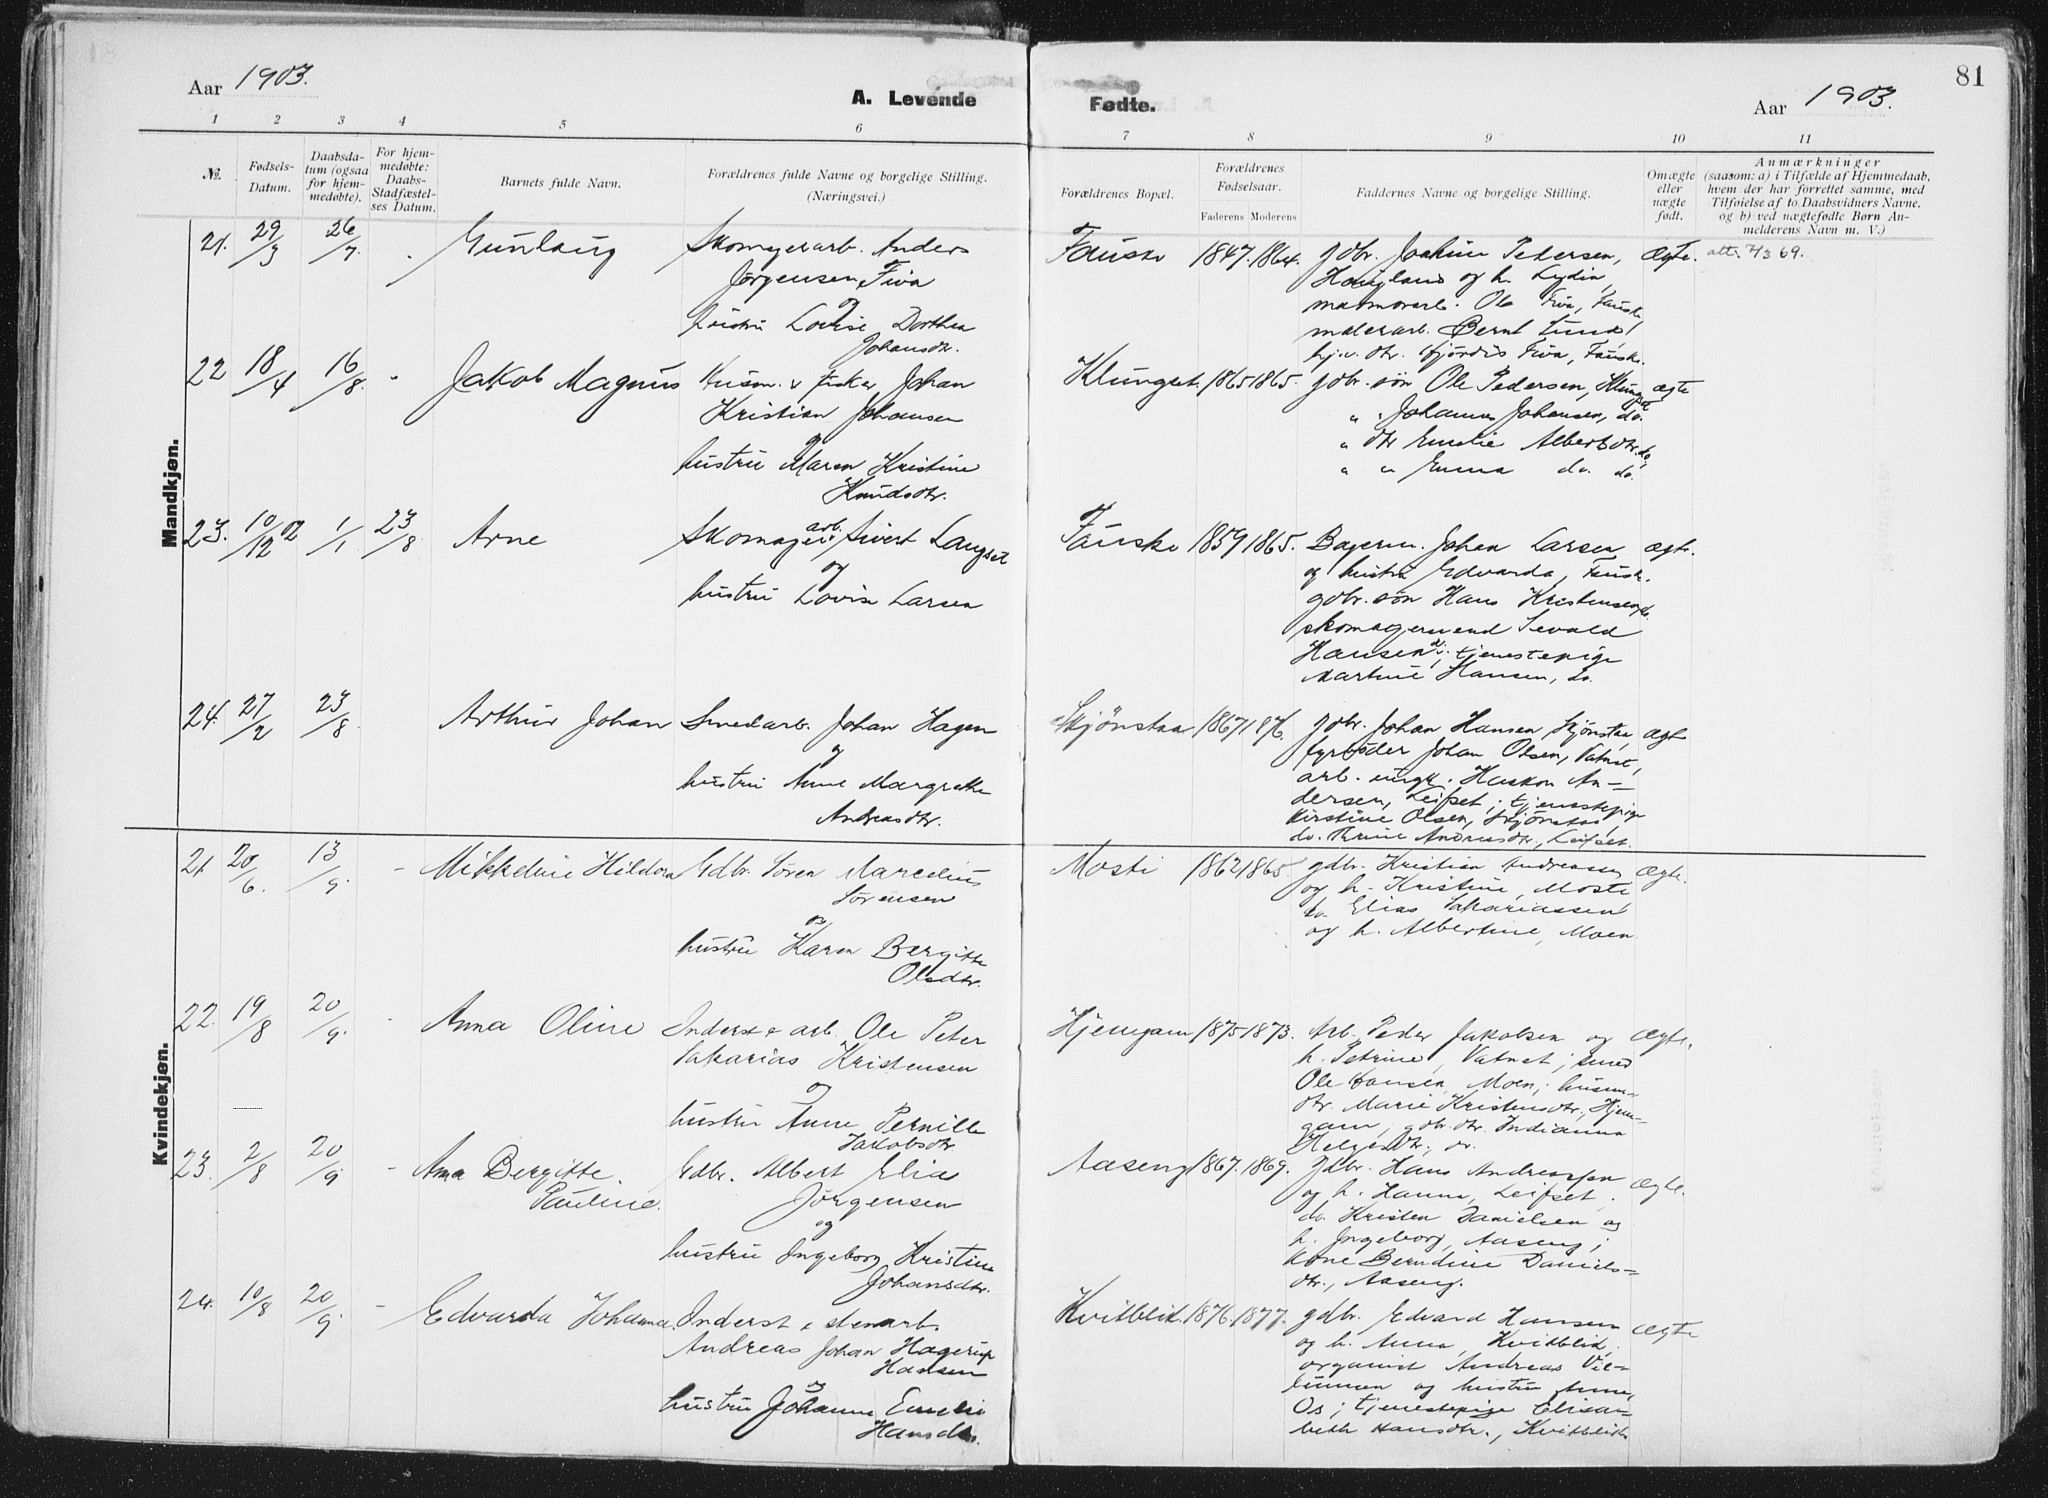 Aar 1903.
A. Levende
Fødte.
Aar 1903.
81
1 2 3 4 5 6 7 8 9 10 11
№.
Fødsels-
Datum.
Daabsda-
tum (ogsaa
for hjem-
medøbte).
For hjem-
medøbte:
Daabs-
Stadfæstel-
ses Datum.
Barnets fulde Navn.
Forældrenes fulde Navne og borgelige Stilling.
(Næringsvei.)
Forældrenes Bopæl.
Forældrenes
Fødselsaar.
Faderens Moderens
Faddernes Navne og borgelige Stilling.
Omægte
eller
uægte
født.
Anmærkninger
(saasom: a) i Tilfælde af Hjemmedaab,
hvem der har forrettet samme, med
Tilføielse af to Daabsvidners Navne,
og b) ved uægtefødte Børn An-
melderens Navn m. V.)
Mandkjøn.
21. 29/3 26/7. Gunlaug
Skomagerarb. Anders
Jørgensen Fiva
og
hustru Lovise Dorthea
Johansdtr.
Fauske 1847. 1864.
gdbr. Joakim Pedersen,
Haugland og h. Lydia,
marmorarb. Ole Fiva, Fauske
malerarb. Bernt Lund,
hj.v. dtr. Hjördis Fiva, Fauske.
Ægte.
att. 7/3 69.
22 18/4 16/8. Jakob Magnus
Husm. & fisker Johan
Kristian Johansen
og
hustru Maren Kristine
Knudsdtr.
Klungset. 1865 1865.
gdbr. søn Ole Pedersen, Klungset
" " Johannes Johansen, do.
" dtr Emelie Albertsdtr. do,
" " Emma do. do.
ægte
23. 10/12 02 1/1 23/8 Arne
Skomagerarb. Sivert Langset
og
hustru Lovise Larsen
Fauske 1859 1865.
Bagerm. Johan Larsen
og hustru Edvarda, Fausk.
gdbr. søn Hans Kristensen do.
skomagersvend Sevald
Hansen do. tjenestepige
Martine Hansen, do.
ægte.
24. 27/2 23/8 Arthur Johan
Smedarb. Johan Hagen
og
hustru Anne Margrethe
Andreasdtr.
Skjønstaa 1867 1876.
gdbr. Johan Hansen Skjønstaa,
fyrbøder Johan Olsen, Vatnet,
arb. ungk. Haakon An-
dersen, Leifset; tjenestepige
Kirstine Olsen, Skjønstaa,
do. Trine Andreasdtr., Leifset.
ægt
Kvindekjøn.
21. 20/6. 13/9. Mikkeline Hildora
Gdbr. Søren Marcelius
Sørensen
og
hustru Karen Bergitte
Olsdtr.
Mosti 1862 1865.
gdbr. Kristian Andreassen
og h. Kristine, Mosti
do. Elias Sakariassen
og h. Albertine, Moen
Ægte.
22. 19/8 20/9. Anna Oline
Inderst & arb. Ole Peter
Sakarias Kristensen
og
hustru Anne Pernille
Jakobsdtr
Hjemgam 1875 1873.
Arb. Peder Jakobsen og
h. Petrine, Vatnet; smed
Ole Hansen, Moen; husm.-
dtr. Marie Kristensdtr., Hjem-
gam, gdb. dtr. Indianna
Helgesdtr., do.
Ægte.
23. 2/8 20/9 Anna Bergitte
Pauline.
Gdbr. Albert Elias
Jørgensen
og
hustru Ingeborg Kristine
Johansdtr.
Aaseng 1867. 1869.
gdbr. Hans Andreassen
og h. Hanna, Leifset.
do. Kristen Danielsen og
h. Ingeborg, Aaseng;
kone Berndine Daniels-
dtr., Aaseng.
Ægte.
24. 10/8 20/9 Edvarda Johanna.
Inderst & stenarb.
Andreas Johan Hagerup
Hansen
og
hustru Johanne Emelie
Hansdtr.
Kvitblik. 1876. 1877.
gdbr. Edvard Hansen
og h. Anna, Kvitblik,
organist Andreas Vil-
lumsen og hustru Anne,
Os; tjenestepige Elisa-
beth Hansdtr., Kvitblik
Ægte